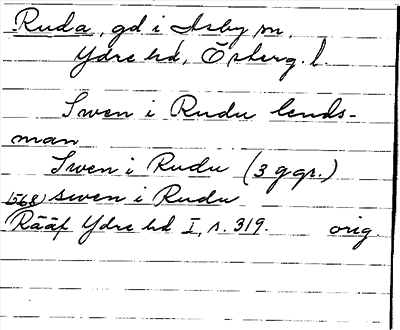 Ruda, gd i Asby sn,
Ydre hd, Österg. l.
Swen i Rudu lends-
man
Swen i Rudu (3 ggr.)
1568) swen i Rudu
Rääf Ydre hd I, s. 319. orig.